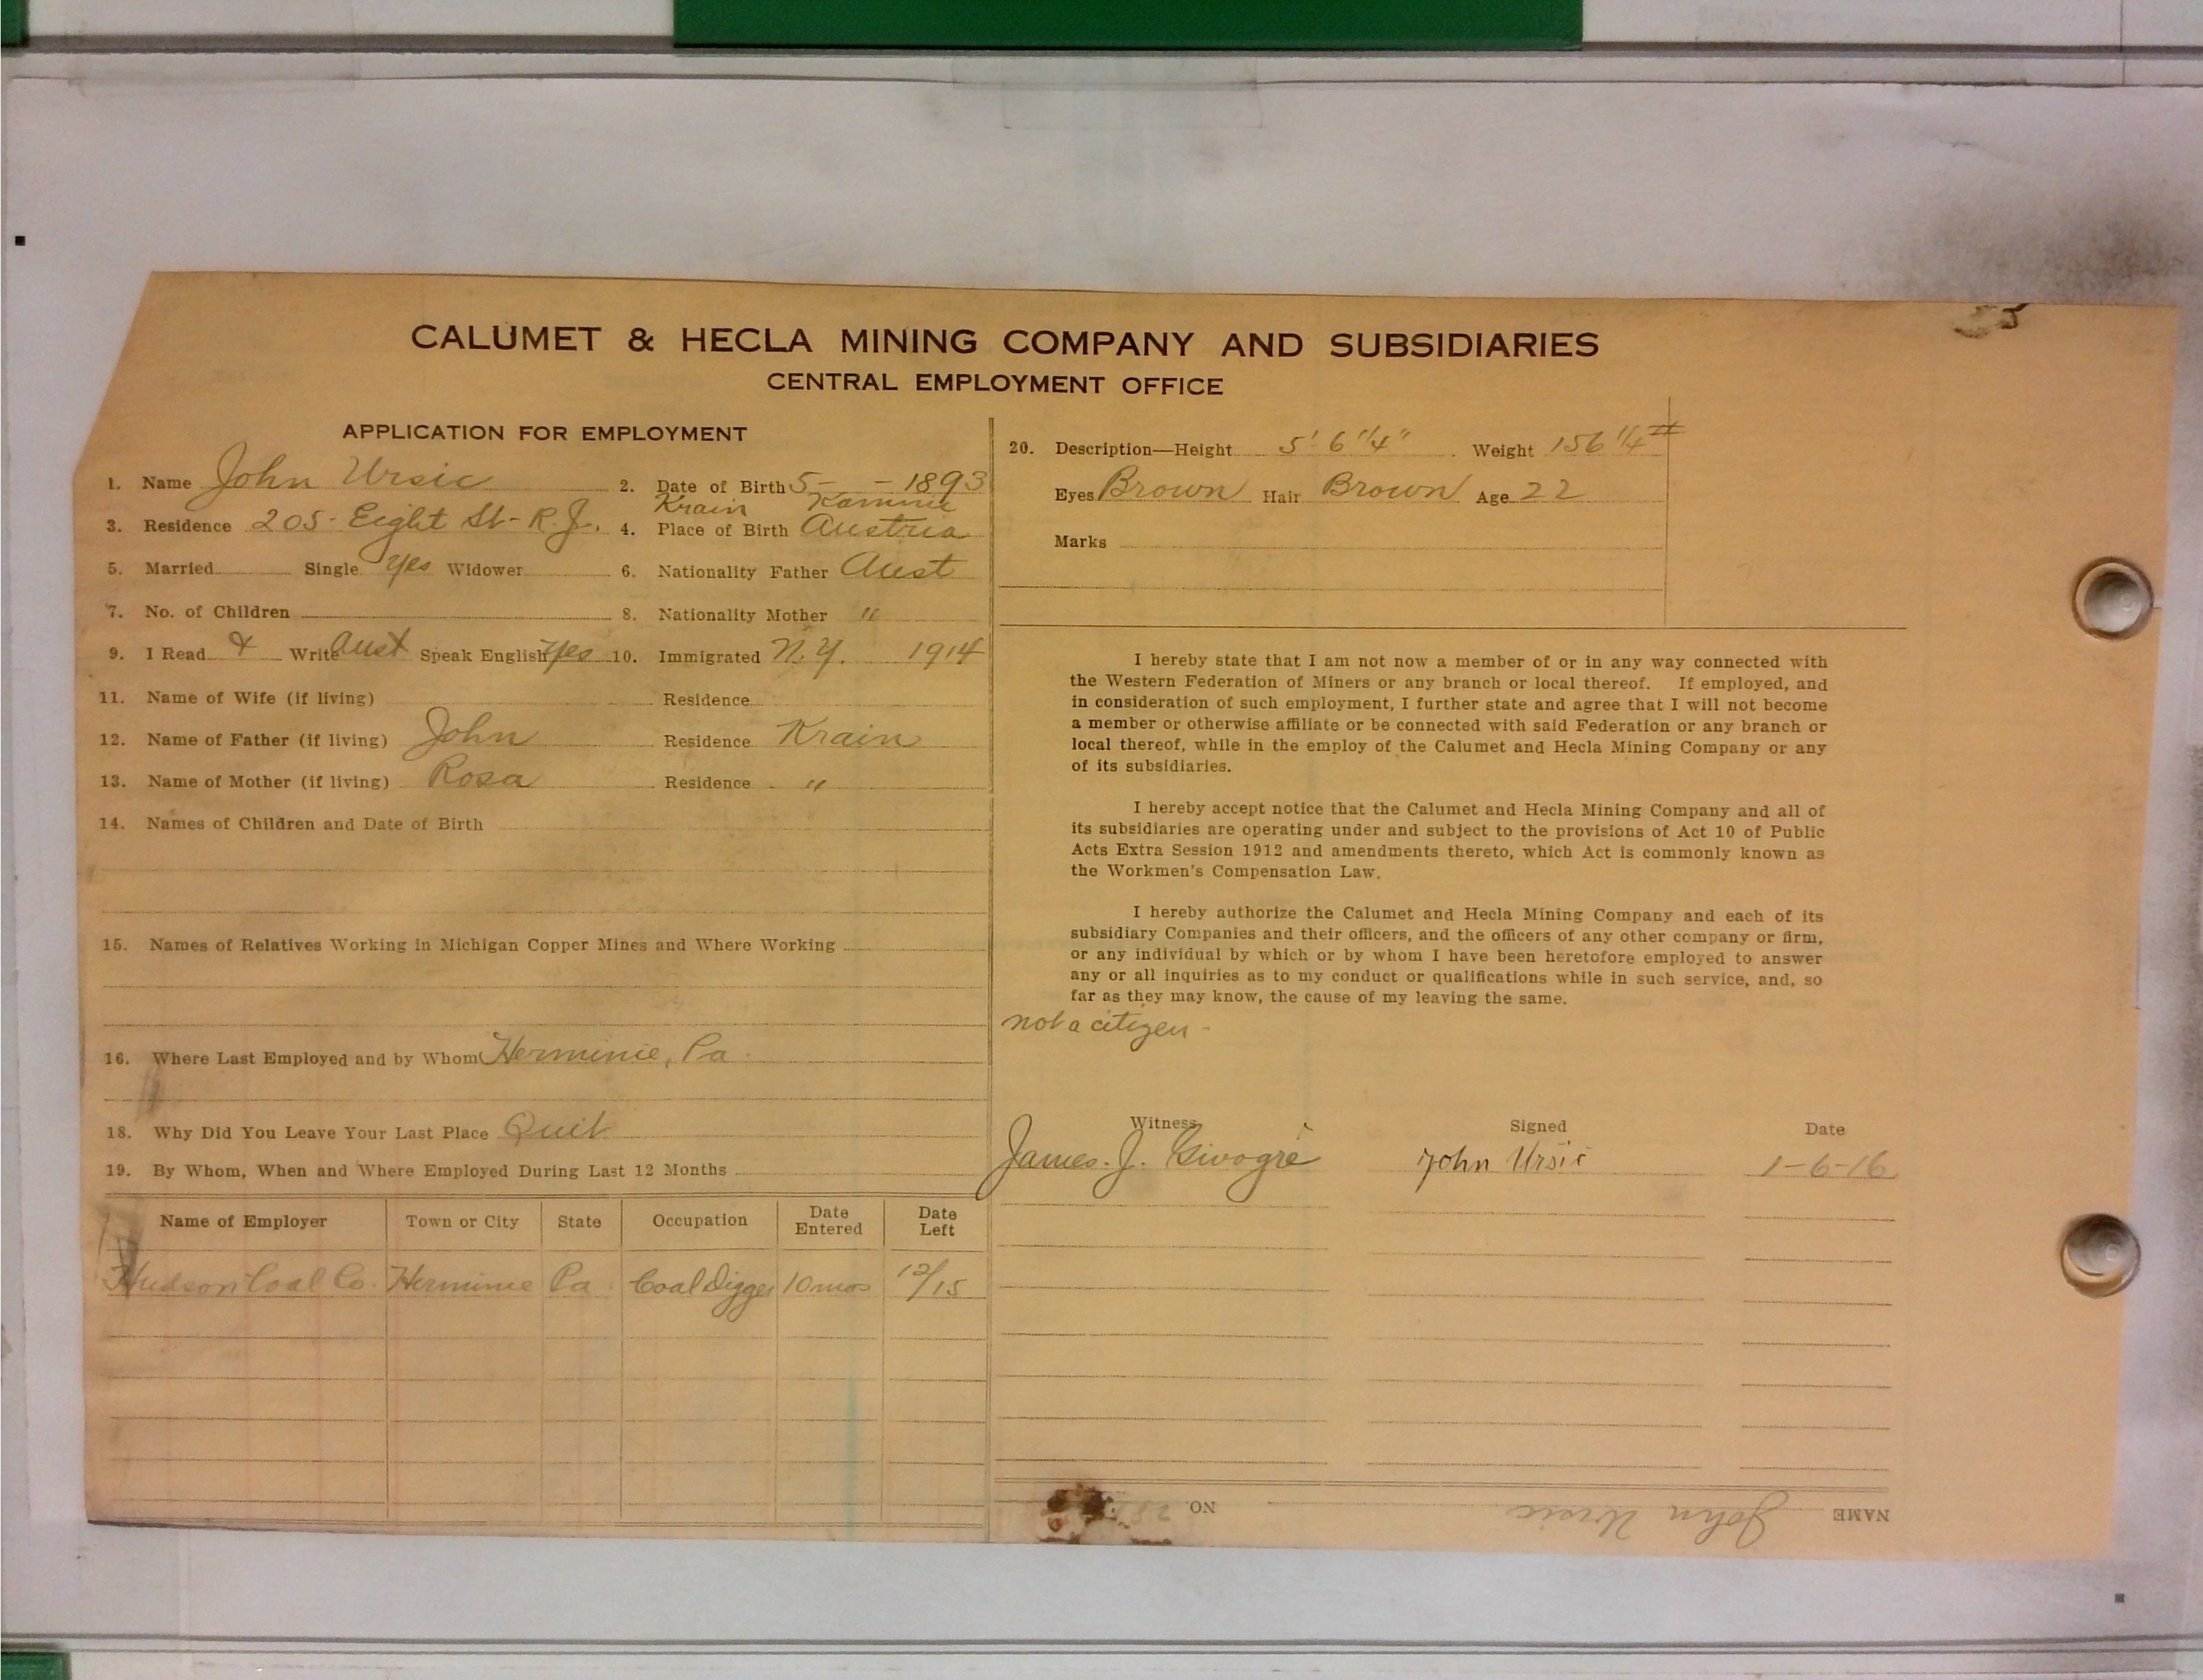 CALUMET & HECLA MINING COMPANY AND SUBSIDIARIES
CENTRAL EMPLOYMENT OFFICE
APPLICATION FOR EMPLOYMENT
1. Name John Ursic 2. Date of Birth 5 - - 1893
Krain
3. Residence 205 - Eight St - R.J. 4. Place of Birth Austria
5. Married Single Yes Widower 6. Nationality Father Aust
7. No. of Children 8. Nationality Mother "
9. I Read & Write Aust Speak English Yes 10. Immigrated N.Y. 1914
11. Name of Wife (if living) Residence
12. Name of Father (if living) John Residence Krain
13. Name of Mother (if living) Rosa Residence "
14. Names of Children and Date of Birth
15. Names of Relatives Working in Michigan Copper Mines and Where Working
16. Where Last Employed and by Whom Herminie, Pa
18. Why Did You Leave Your Last Place Quit
19. By Whom, When and Where Employed During Last 12 Months
Name of Employer Town or City State Occupation Date Entered Date Left
Hudson Coal Co. Herminie Pa Coal Digger 10 mos 12/15
20. Description—Height 5' 6 1/4" Weight 156 1/4 #
Eyes Brown Hair Brown Age 22
Marks
I hereby state that I am not now a member of or in any way connected with
the Western Federation of Miners or any branch or local thereof. If employed, and
in consideration of such employment, I further state and agree that I will not become
a member or otherwise affiliate or be connected with said Federation or any branch or
local thereof, while in the employ of the Calumet and Hecla Mining Company or any
of its subsidiaries.
I hereby accept notice that the Calumet and Hecla Mining Company and all of
its subsidiaries are operating under and subject to the provisions of Act 10 of Public
Acts Extra Session 1912 and amendments thereto, which Act is commonly known as
the Workmen's Compensation Law.
I hereby authorize the Calumet and Hecla Mining Company and each of its
subsidiary Companies and their officers, and the officers of any other company or firm,
or any individual by which or by whom I have been heretofore employed to answer
any or all inquiries as to my conduct or qualifications while in such service, and, so
far as they may know, the cause of my leaving the same.
not a citizen -
Witness Signed Date
James. J. John Ursic 1-6-16
NAME John Ursic NO.